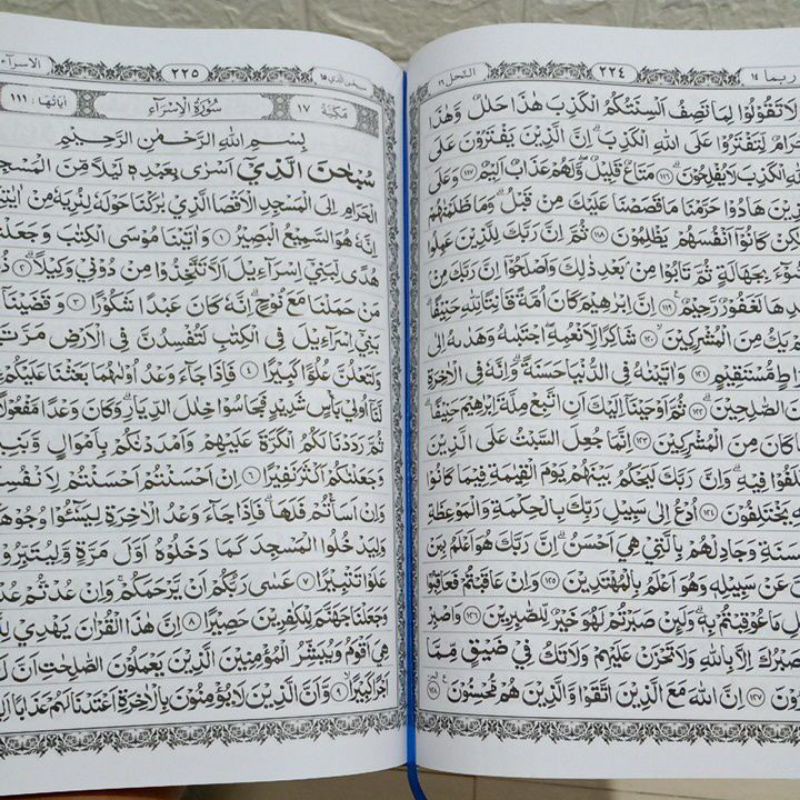 ربما ١٤
٢٢٤
النحل ١٦
لَا تَقُوْلُوْا لِمَا تَصِفُ اَلْسِنَتُكُمُ الْكَذِبَ هٰذَا حَلٰلٌ وَّهٰذَا
حَرَامٌ لِّتَفْتَرُوْا عَلَى اللهِ الْكَذِبَۗ اِنَّ الَّذِيْنَ يَفْتَرُوْنَ عَلَى
اللهِ الْكَذِبَ لَا يُفْلِحُوْنَۗ ١١٦ مَتَاعٌ قَلِيْلٌ وَّلَهُمْ عَذَابٌ اَلِيْمٌ ١١٧ وَعَلَى
الَّذِيْنَ هَادُوْا حَرَّمْنَا مَا قَصَصْنَا عَلَيْكَ مِنْ قَبْلُۗ وَمَا ظَلَمْنٰهُمْ
وَلٰكِنْ كَانُوْٓا اَنْفُسَهُمْ يَظْلِمُوْنَ ١١٨ ثُمَّ اِنَّ رَبَّكَ لِلَّذِيْنَ عَمِلُوا
السُّوْۤءَ بِجَهَالَةٍ ثُمَّ تَابُوْا مِنْۢ بَعْدِ ذٰلِكَ وَاَصْلَحُوْٓا اِنَّ رَبَّكَ مِنْۢ
بَعْدِهَا لَغَفُوْرٌ رَّحِيْمٌ ١١٩ اِنَّ اِبْرٰهِيْمَ كَانَ اُمَّةً قَانِتًا لِّلّٰهِ حَنِيْفًاۗ
وَلَمْ يَكُ مِنَ الْمُشْرِكِيْنَۙ ١٢٠ شَاكِرًا لِّاَنْعُمِهٖۗ اِجْتَبٰىهُ وَهَدٰىهُ اِلٰى
صِرَاطٍ مُّسْتَقِيْمٍ ١٢١ وَاٰتَيْنٰهُ فِى الدُّنْيَا حَسَنَةًۗ وَاِنَّهٗ فِى الْاٰخِرَةِ
لَمِنَ الصّٰلِحِيْنَۗ ١٢٢ ثُمَّ اَوْحَيْنَآ اِلَيْكَ اَنِ اتَّبِعْ مِلَّةَ اِبْرٰهِيْمَ حَنِيْفًاۗ
وَمَا كَانَ مِنَ الْمُشْرِكِيْنَ ١٢٣ اِنَّمَا جُعِلَ السَّبْتُ عَلَى الَّذِيْنَ
اخْتَلَفُوْا فِيْهِۗ وَاِنَّ رَبَّكَ لَيَحْكُمُ بَيْنَهُمْ يَوْمَ الْقِيٰمَةِ فِيْمَا كَانُوْا
فِيْهِ يَخْتَلِفُوْنَ ١٢٤ اُدْعُ اِلٰى سَبِيْلِ رَبِّكَ بِالْحِكْمَةِ وَالْمَوْعِظَةِ
الْحَسَنَةِ وَجَادِلْهُمْ بِالَّتِيْ هِيَ اَحْسَنُۗ اِنَّ رَبَّكَ هُوَ اَعْلَمُ بِمَنْ
ضَلَّ عَنْ سَبِيْلِهٖ وَهُوَ اَعْلَمُ بِالْمُهْتَدِيْنَ ١٢٥ وَاِنْ عَاقَبْتُمْ فَعَاقِبُوْا
بِمِثْلِ مَا عُوْقِبْتُمْ بِهٖۗ وَلَىِٕنْ صَبَرْتُمْ لَهُوَ خَيْرٌ لِّلصّٰبِرِيْنَ ١٢٦ وَاصْبِرْ
وَمَا صَبْرُكَ اِلَّا بِاللهِ وَلَا تَحْزَنْ عَلَيْهِمْ وَلَا تَكُ فِيْ ضَيْقٍ مِّمَّا
يَمْكُرُوْنَ ١٢٧ اِنَّ اللهَ مَعَ الَّذِيْنَ اتَّقَوْا وَّالَّذِيْنَ هُمْ مُّحْسِنُوْنَ ١٢٨
سبحن الذي ١٥
٢٢٥
الاسراء
١٧ مَكِّيَّة
سُوْرَةُ الْاِسْرَاءِ
اٰيَاتُهَا : ١١١
بِسْمِ اللهِ الرَّحْمٰنِ الرَّحِيْمِ
سُبْحٰنَ الَّذِيْٓ اَسْرٰى بِعَبْدِهٖ لَيْلًا مِّنَ الْمَسْجِدِ
الْحَرَامِ اِلَى الْمَسْجِدِ الْاَقْصَا الَّذِيْ بٰرَكْنَا حَوْلَهٗ لِنُرِيَهٗ مِنْ اٰيٰتِنَا
اِنَّهٗ هُوَ السَّمِيْعُ الْبَصِيْرُ ١ وَاٰتَيْنَا مُوْسَى الْكِتٰبَ وَجَعَلْنٰهُ
هُدًى لِّبَنِيْٓ اِسْرَاۤءِيْلَ اَلَّا تَتَّخِذُوْا مِنْ دُوْنِيْ وَكِيْلًاۗ ٢
مَنْ حَمَلْنَا مَعَ نُوْحٍۗ اِنَّهٗ كَانَ عَبْدًا شَكُوْرًا ٣ وَقَضَيْنَآ
بَنِيْٓ اِسْرَاۤءِيْلَ فِى الْكِتٰبِ لَتُفْسِدُنَّ فِى الْاَرْضِ مَرَّتَيْنِ
وَلَتَعْلُنَّ عُلُوًّا كَبِيْرًا ٤ فَاِذَا جَاۤءَ وَعْدُ اُوْلٰىهُمَا بَعَثْنَا عَلَيْكُمْ
لَّنَآ اُولِيْ بَأْسٍ شَدِيْدٍ فَجَاسُوْا خِلٰلَ الدِّيَارِۗ وَكَانَ وَعْدًا مَّفْعُوْلًا
ثُمَّ رَدَدْنَا لَكُمُ الْكَرَّةَ عَلَيْهِمْ وَاَمْدَدْنٰكُمْ بِاَمْوَالٍ وَّبَنِيْنَ
وَجَعَلْنٰكُمْ اَكْثَرَ نَفِيْرًا ٦ اِنْ اَحْسَنْتُمْ اَحْسَنْتُمْ لِاَنْفُسِكُمْ
وَاِنْ اَسَأْتُمْ فَلَهَاۗ فَاِذَا جَاۤءَ وَعْدُ الْاٰخِرَةِ لِيَسُوْۤءٗا وُجُوْهَكُمْ
وَلِيَدْخُلُوا الْمَسْجِدَ كَمَا دَخَلُوْهُ اَوَّلَ مَرَّةٍ وَّلِيُتَبِّرُوْا
عَلَوْا تَتْبِيْرًا ٧ عَسٰى رَبُّكُمْ اَنْ يَّرْحَمَكُمْۚ وَاِنْ عُدْتُّمْ عُدْنَا
وَجَعَلْنَا جَهَنَّمَ لِلْكٰفِرِيْنَ حَصِيْرًا ٨ اِنَّ هٰذَا الْقُرْاٰنَ يَهْدِيْ لِلَّتِيْ
هِيَ اَقْوَمُ وَيُبَشِّرُ الْمُؤْمِنِيْنَ الَّذِيْنَ يَعْمَلُوْنَ الصّٰلِحٰتِ اَنَّ لَهُمْ
اَجْرًا كَبِيْرًاۙ ٩ وَّاَنَّ الَّذِيْنَ لَا يُؤْمِنُوْنَ بِالْاٰخِرَةِ اَعْتَدْنَا لَهُمْ عَذَابًا اَلِيْمًا